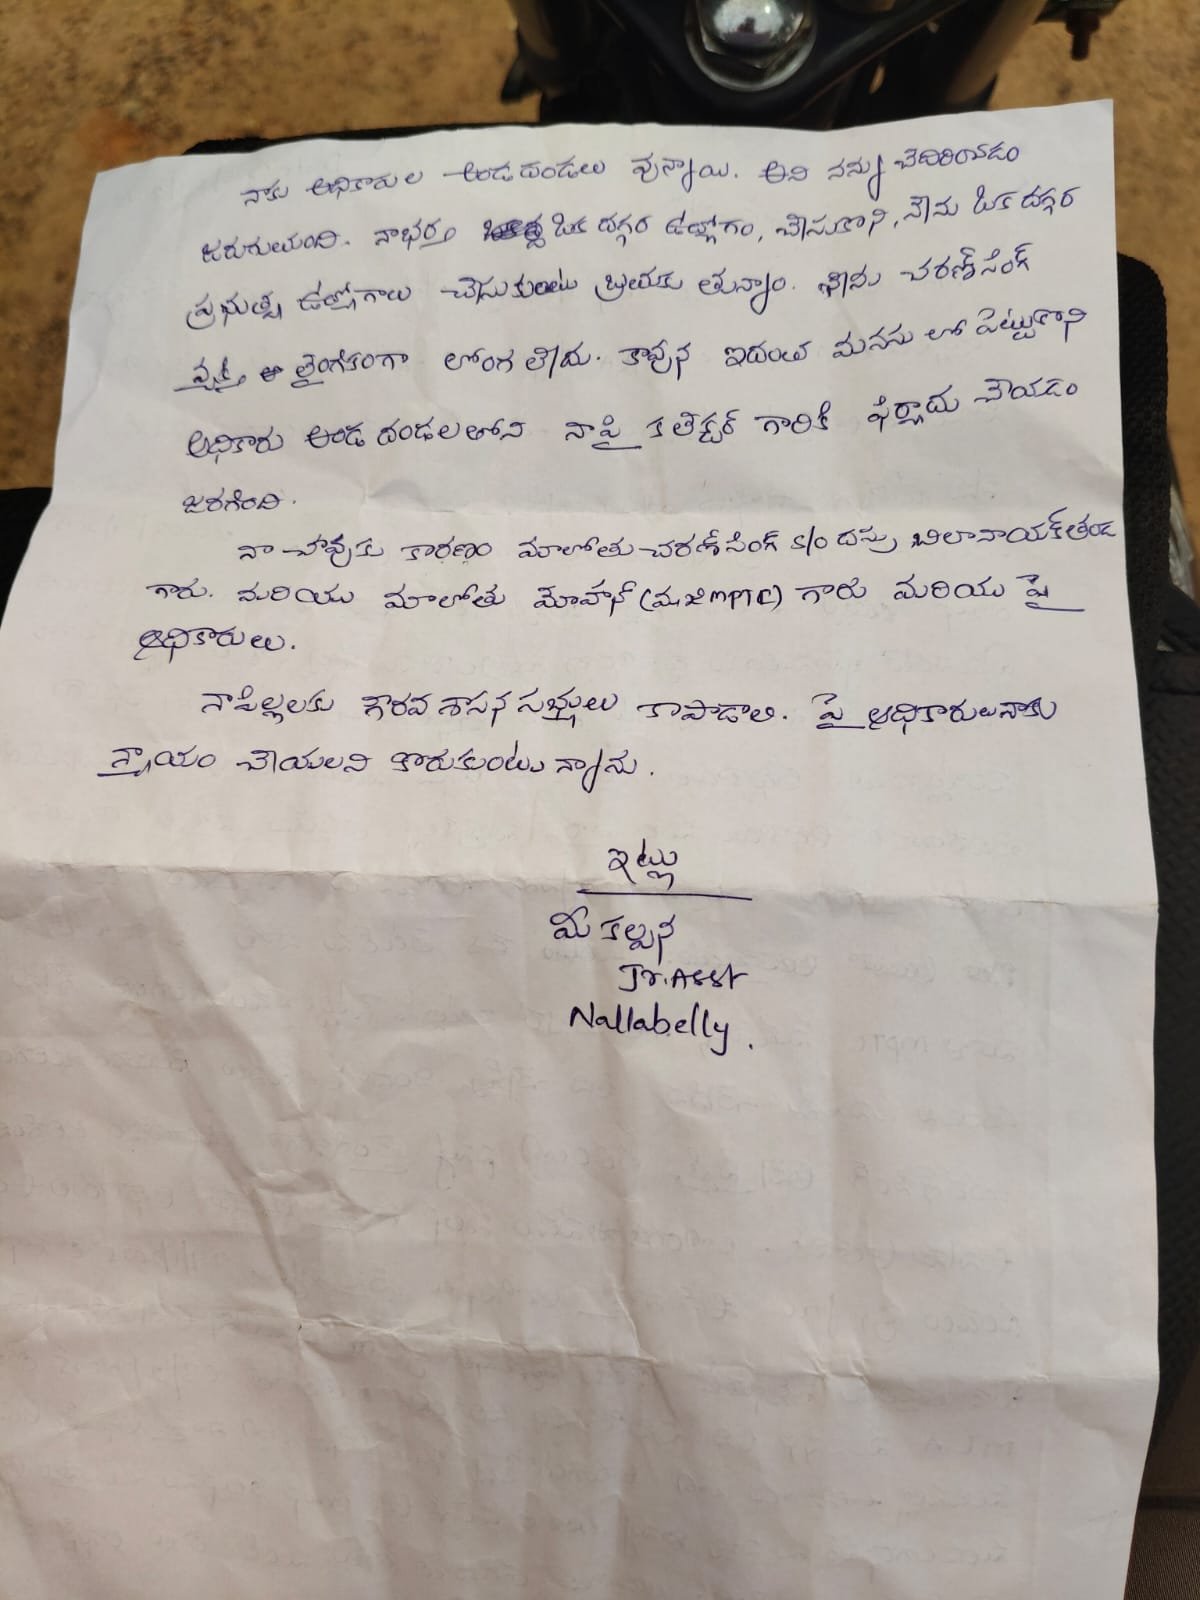 నాకు అధికారుల అండదండలు వున్నాయి. అని నన్ను బెదిరియడం
జరుగుతుంది. నాభర్త ఒక దగ్గర ఉద్యోగం, చేసుకొని, నేను ఒక దగ్గర
ప్రభుత్వ ఉద్యోగాలు చేసుకుంటు బ్రతుకు తున్నాం. నేను చరణ్‌సింగ్
వ్యక్తి లైంగికంగా లోంగ లేదు. కావున ఇదంత మనసు లో పెట్టుకొని
అధికారు అండ దండలతోని నాపై కలెక్టర్ గారికి ఫిర్యాదు చేయడం
జరగింది.
నా చావుకు కారణం మాలోతు చరణ్‌సింగ్ S/o దస్రు బిలానాయక్‌తండ
గారు. మరియు మాలోతు మోహన్ (మాజీ MPTC) గారు మరియు పై
అధికారులు.
నాపిల్లలకు గౌరవ శాసన సభ్యులు కాపాడాలి. పై అధికారులు నాకు
న్యాయం చేయలని కోరుకుంటు న్నాను.
ఇట్లు
మీ కల్పన
Jr.Asst
Nallabelly.